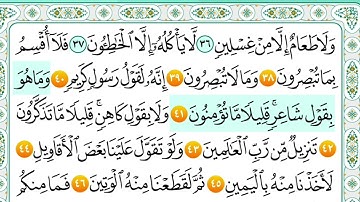 وَلَا طَعَامٌ إِلَّا مِنْ غِسْلِينٍ ٣٦ لَّا يَأْكُلُهُۥٓ إِلَّا ٱلْخَٰطِـُٔونَ ٣٧ فَلَآ أُقْسِمُ
بِمَا تُبْصِرُونَ ٣٨ وَمَا لَا تُبْصِرُونَ ٣٩ إِنَّهُۥ لَقَوْلُ رَسُولٍ كَرِيمٍ ٤٠ وَمَا هُوَ
بِقَوْلِ شَاعِرٍ ۚ قَلِيلًا مَّا تُؤْمِنُونَ ٤١ وَلَا بِقَوْلِ كَاهِنٍ ۚ قَلِيلًا مَّا تَذَكَّرُونَ
٤٢ تَنزِيلٌ مِّن رَّبِّ ٱلْعَٰلَمِينَ ٤٣ وَلَوْ تَقَوَّلَ عَلَيْنَا بَعْضَ ٱلْأَقَاوِيلِ ٤٤
لَأَخَذْنَا مِنْهُ بِٱلْيَمِينِ ٤٥ ثُمَّ لَقَطَعْنَا مِنْهُ ٱلْوَتِينَ ٤٦ فَمَا مِنكُم